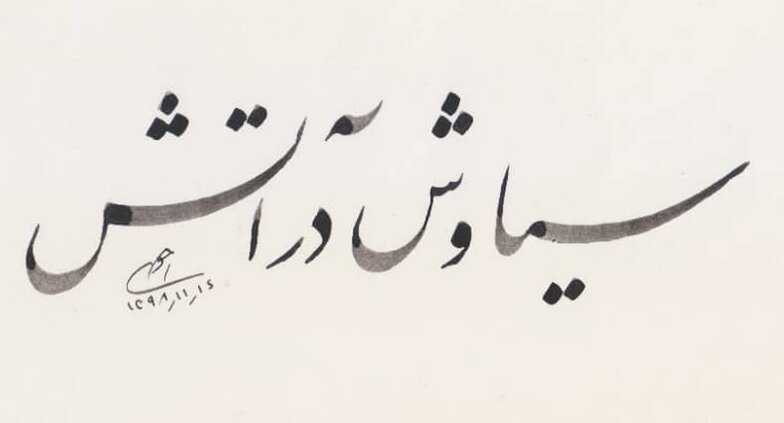 سیاوش در آتش
۱۳۹۸٫۱۱٫۱۶